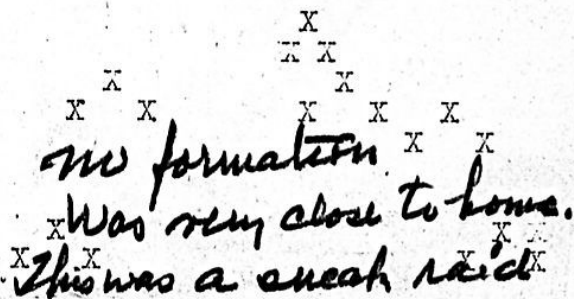 X
X X
X X
X X X X X
X X
no formation
Was very close to home.
X X
X X X X
This was a sneak raid